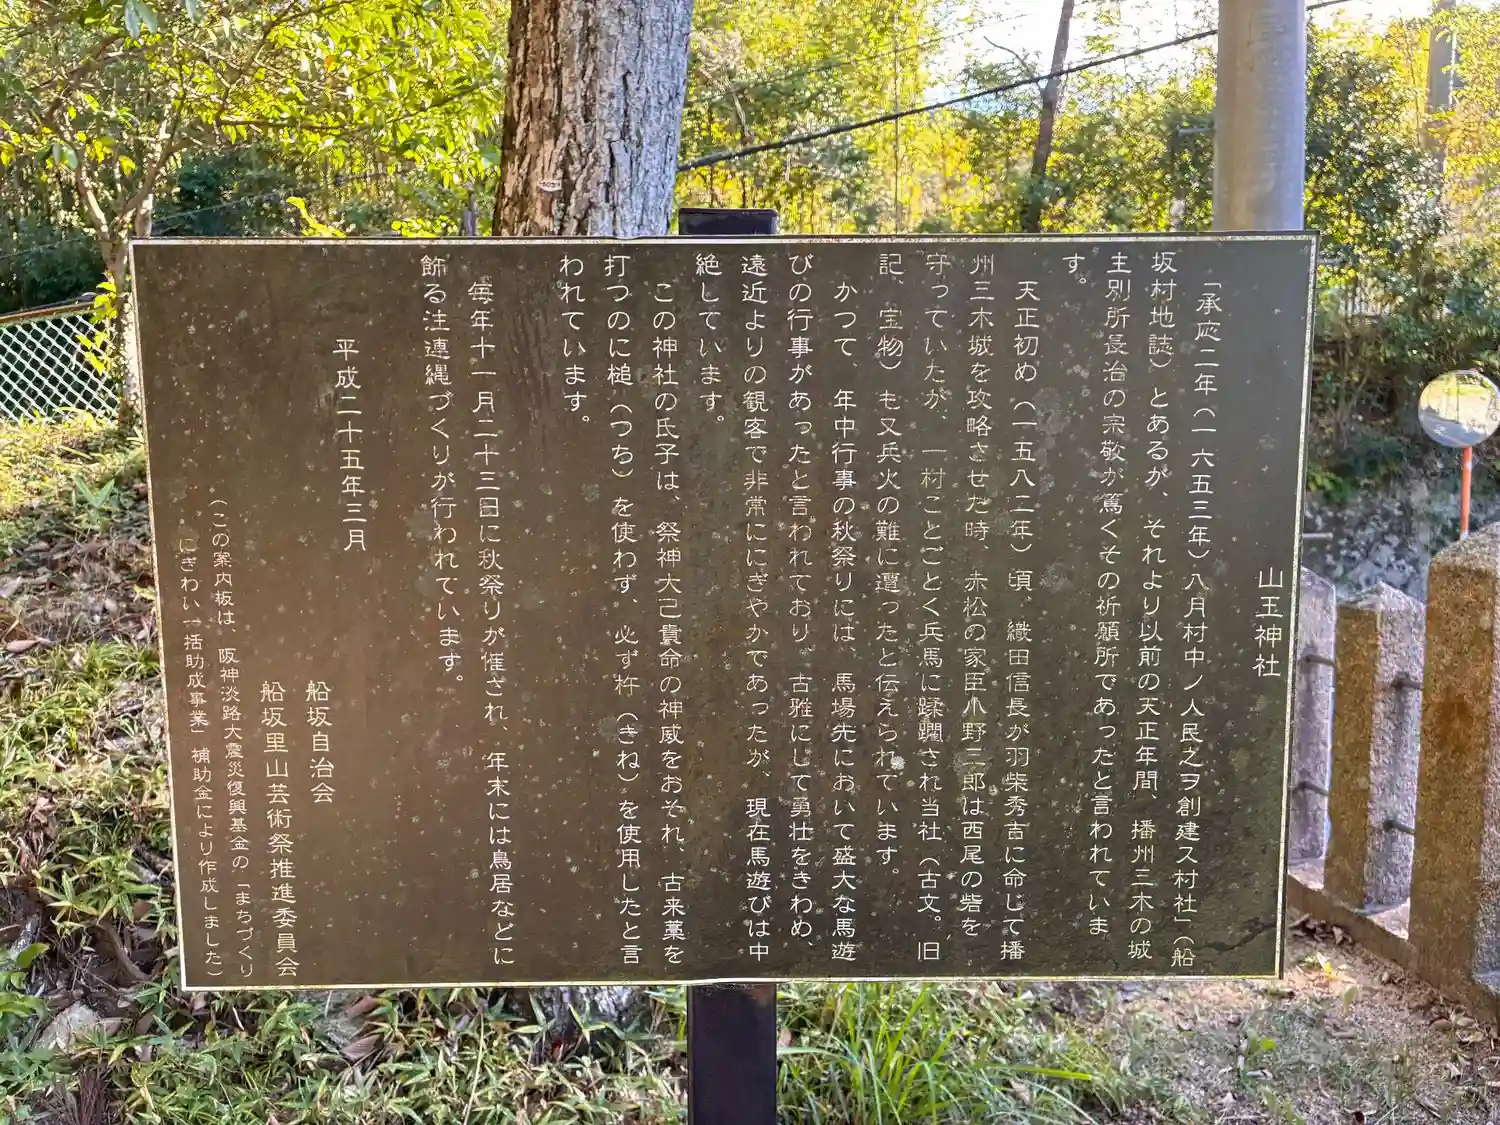 山王神社
「承応二年（一六五三年）八月村中ノ人民之ヲ創建ス村社」（船
坂村地誌）とあるが、それより以前の天正年間、播州三木の城
主別所長治の宗敬が篤くその祈願所であったと言われていま
す。
天正初め（一五八二年）頃、織田信長が羽柴秀吉に命じて播
州三木城を攻略させた時、赤松の家臣小野三郎は西尾の砦を
守っていたが、一村ことごとく兵馬に蹂躙され当社（古文。旧
記、宝物）も又兵火の難に遭ったと伝えられています。
かつて、年中行事の秋祭りには、馬場先において盛大な馬遊
びの行事があったと言われており、古雅にして勇壮をきわめ、
遠近よりの観客で非常ににぎやかであったが、現在馬遊びは中
絶しています。
この神社の氏子は、祭神大己貴命の神威をおそれ、古来藁を
打つのに槌（つち）を使わず、必ず杵（きね）を使用したと言
われています。
毎年十一月二十三日に秋祭りが催され、年末には鳥居などに
飾る注連縄づくりが行われています。
平成二十五年三月
船坂自治会
船坂里山芸術祭推進委員会
（この案内板は、阪神淡路大震災復興基金の「まちづくり
にぎわい一括助成事業」補助金により作成しました）